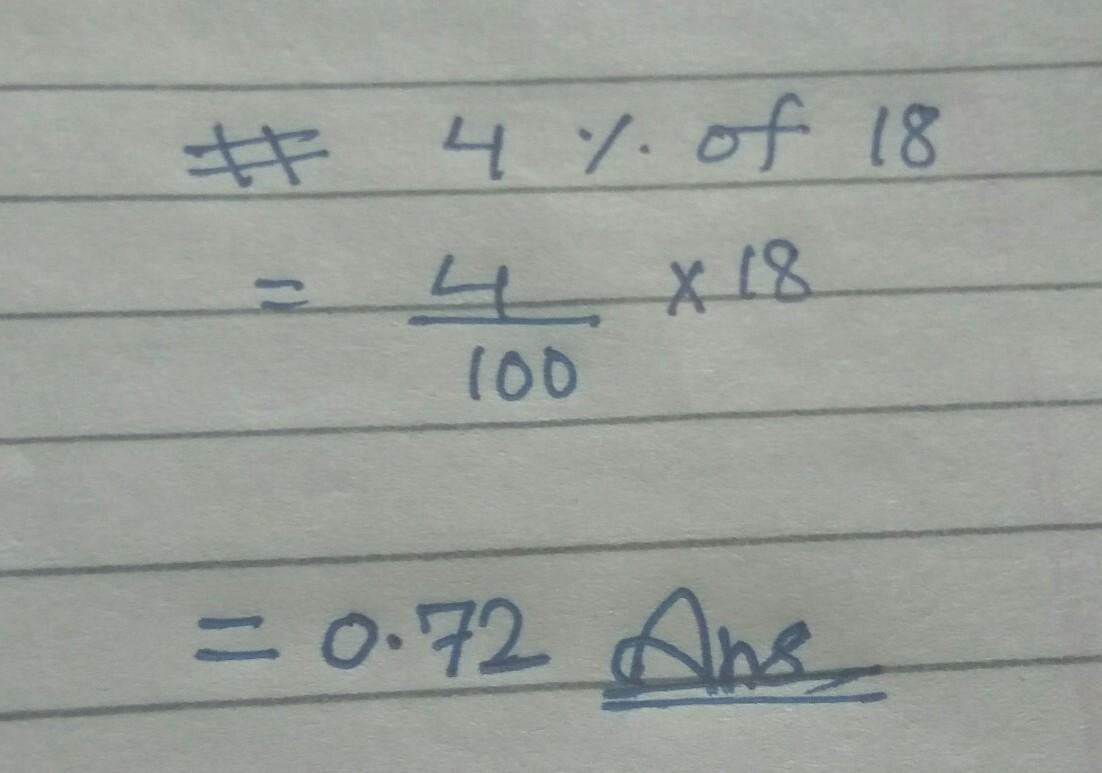 # 4 % of 18
= 4/100 × 18
= 0.72 Ans